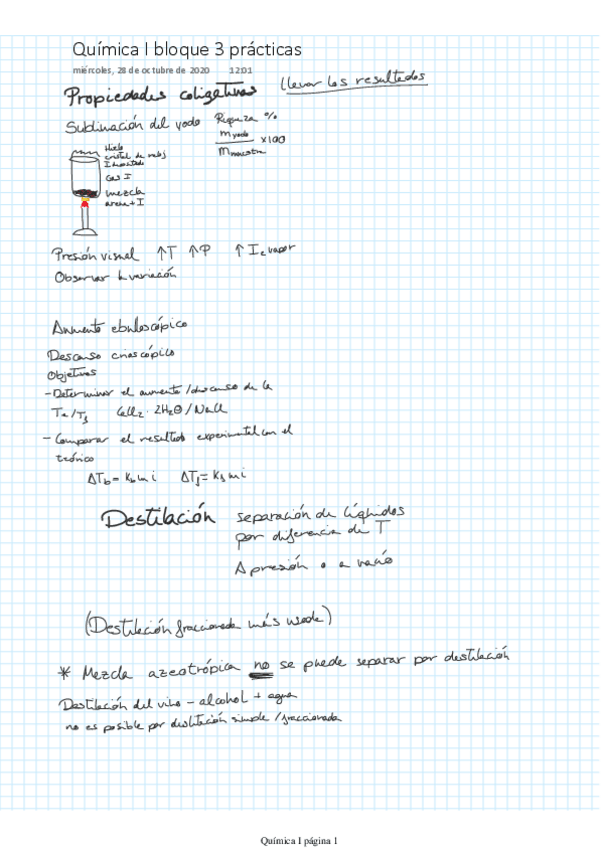 Química I bloque 3 prácticas
miércoles, 28 de octubre de 2020 12:01
llevar los resultados
Propiedades coligativas
Sublimación del yodo Riqueza %
m yodo
x100
m muestra
Hielo
cristal de reloj
I
Gas I
mezcla
arena + I
Presión visual ↑T ↑P ↑ I₂ vapor
Observar la variación
Aumento ebulloscópico
Descenso crioscópico
Objetivos
- Determinar el aumento/descenso de la
Te/Tf CaCl₂·2H₂O/NaCl
- Comparar el resultado experimental con el
teórico
ΔTb = Kb m i ΔTf = Kf m i
Destilación separación de líquidos
por diferencia de T
A presión o a vacío
(Destilación fraccionada más usada)
* Mezcla azeotrópica no se puede separar por destilación
Destilación del vino - alcohol + agua
no es posible por destilación simple/fraccionada
Química I página 1